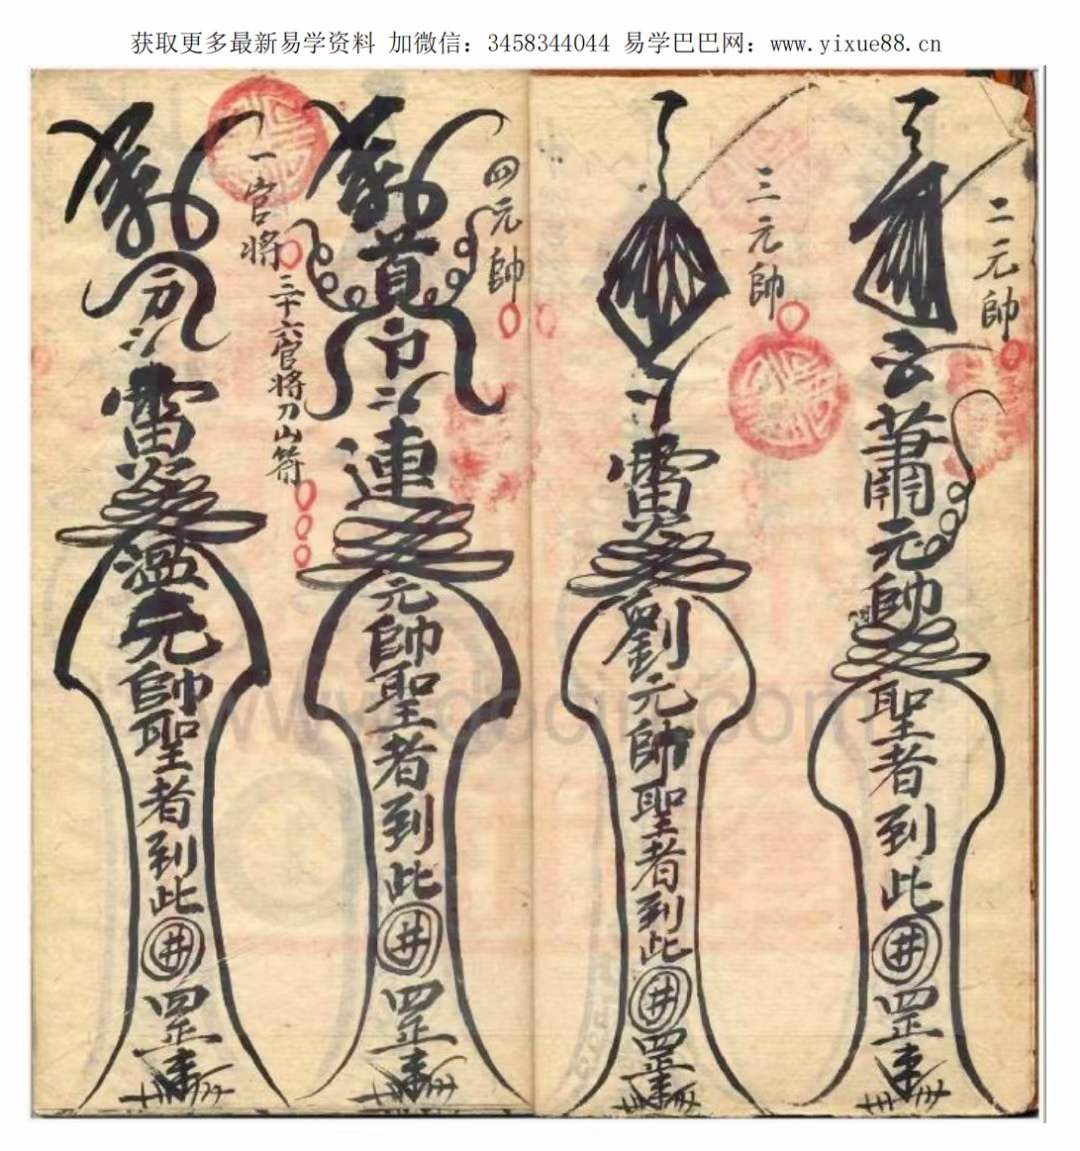 获取更多最新易学资料 加微信：3458344044 易学巴巴网：www.yixue88.cn
二元帥
云蕭元帥聖者到此井罡
三元帥
雷
劉元帥聖者到此井罡
四元帥
連
元帥聖者到此井罡
一官将
三十六官将刀山符
雷
溫元帥聖者到此井罡
www.docin.com